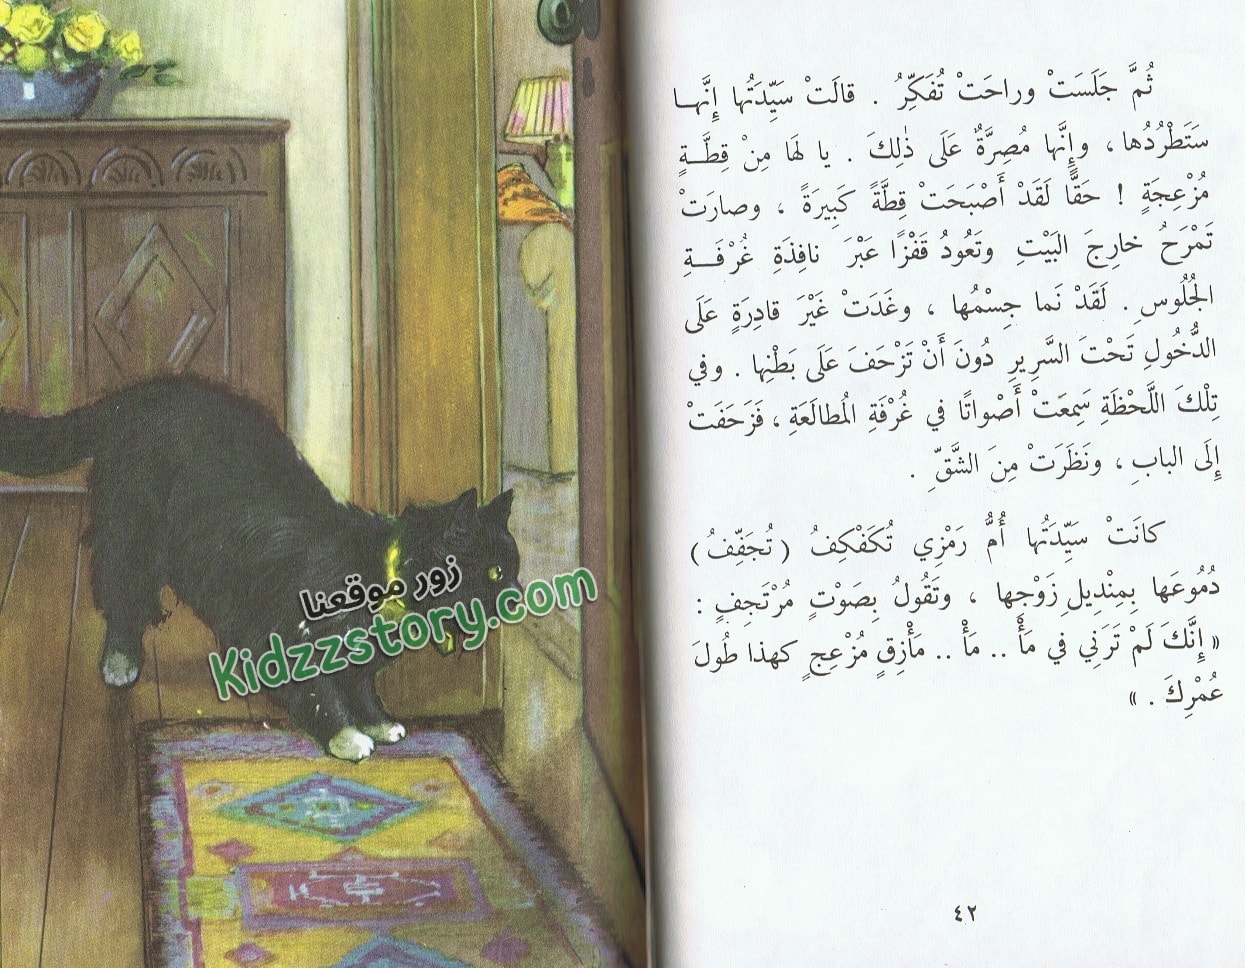 ثُمَّ جَلَسَتْ وراحَتْ تُفَكِّرُ . قالَتْ سَيِّدَتُها إِنَّها
سَتَطْرُدُها ، وإِنَّها مُصِرَّةٌ عَلَى ذٰلِكَ . يا لَها مِنْ قِطَّةٍ
مُزْعِجَةٍ ! حَقًّا لَقَدْ أَصْبَحَتْ قِطَّةً كَبِيرَةً ، وصارَتْ
تَمْرَحُ خارِجَ البَيْتِ وتَعُودُ قَفْزًا عَبْرَ نافِذَةِ غُرْفَةِ
الجُلُوسِ . لَقَدْ نَما جِسْمُها ، وغَدَتْ غَيْرَ قادِرَةٍ عَلَى
الدُّخُولِ تَحْتَ السَّرِيرِ دُونَ أَنْ تَزْحَفَ عَلَى بَطْنِها . وفي
تِلْكَ اللَّحْظَةِ سَمِعَتْ أَصْواتًا في غُرْفَةِ المُطالَعَةِ ، فَزَحَفَتْ
إِلَى البابِ ، ونَظَرَتْ مِنَ الشَّقِّ .
كانَتْ سَيِّدَتُها أُمُّ رَمْزِي تُكَفْكِفُ (تُجَفِّفُ)
دُمُوعَها بِمِنْدِيلِ زَوْجِها ، وتَقُولُ بِصَوْتٍ مُرْتَجِفٍ :
« إِنَّكَ لَمْ تَرَنِي في مَأْ .. مَأْ .. مَأْزِقٍ مُزْعِجٍ كهذا طُولَ
عُمْرِكَ . »
٤٢
زور موقعنا
Kidzzstory.com